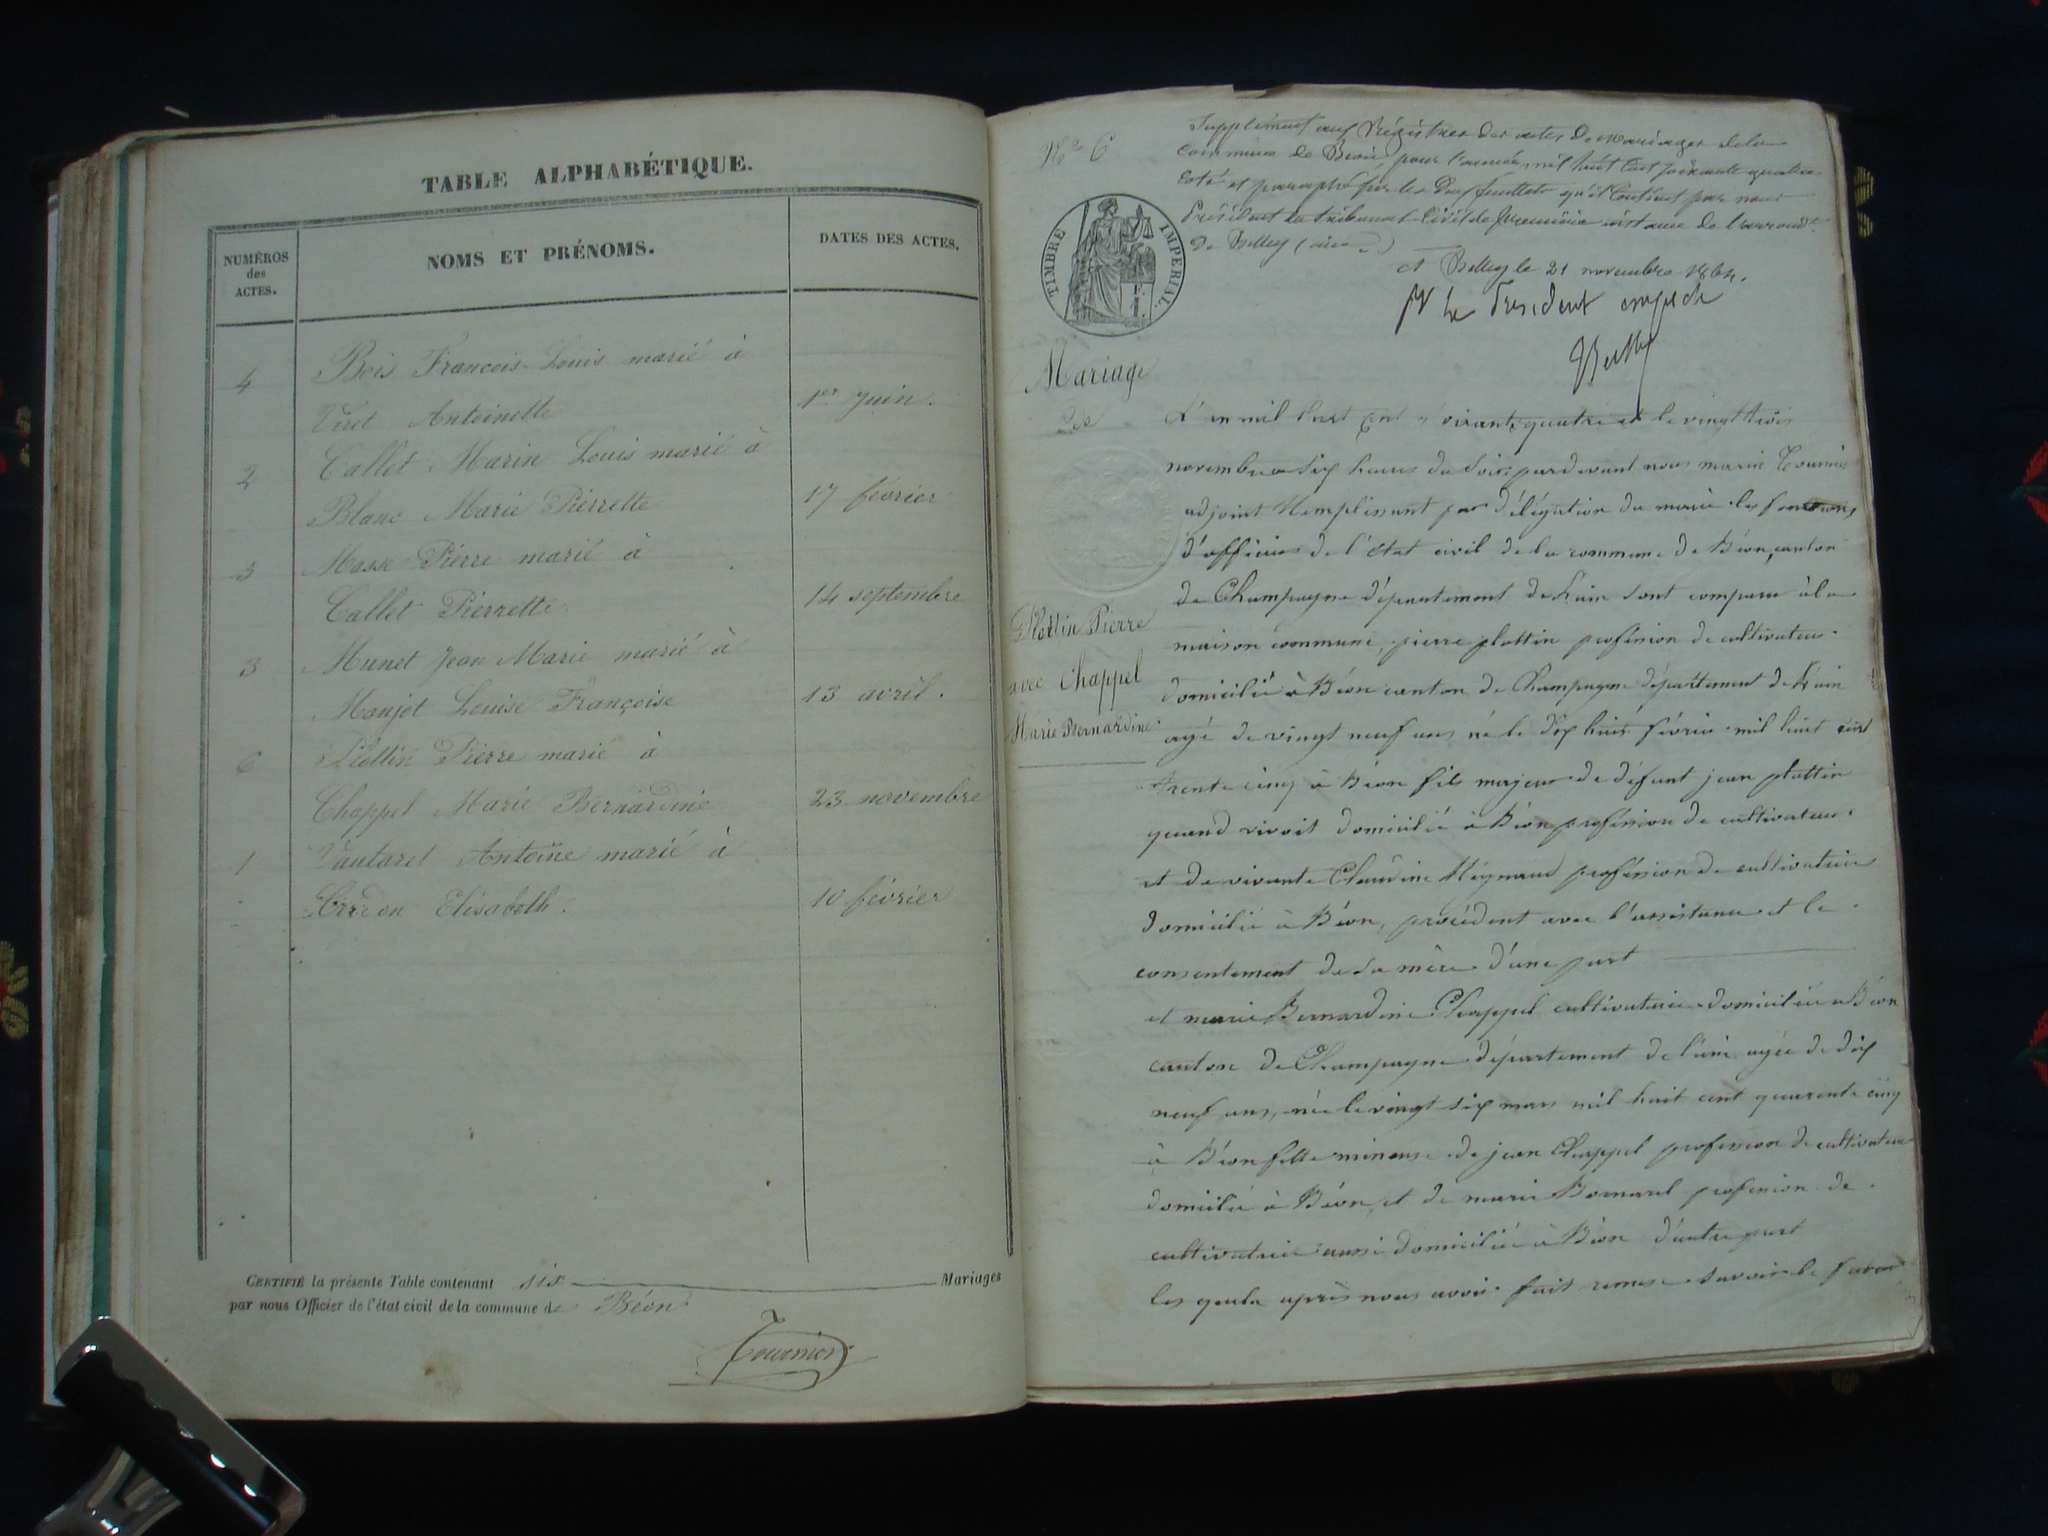 TABLE ALPHABÉTIQUE.
NUMÉROS des ACTES.
NOMS ET PRÉNOMS.
DATES DES ACTES.
4 Bois François-Louis marié à
Viret Antoinette 1er juin.
2 Callet Marin Louis marié à
Blanc Marie Pierrette 17 février
5 Masse Pierre marié à
Callet Pierrette 14 septembre
3 Munet Jean Marie marié à
Monjot Louise Françoise 13 avril.
6 Plottin Pierre marié à
Chappel Marie Bernardine 23 novembre
1 Vautaret Antoine marié à
Elisabeth. 10 février
CERTIFIÉ la présente Table contenant six Mariages
par nous Officier de l'état civil de la commune de Béon
Tournier
No 6
Supplément aux Régistres des actes de mariages de la
commune de Béon, pour l'année mil huit cent soixante quatre
coté et paraphé par les deux feuillets qu'il contient par nous
Président du tribunal Civil de première instance de l'arrondt
de Belley (ain)
A Belley le 21 novembre 1864.
pr Le President empeché
TIMBRE IMPERIAL.
Mariage
des
Plottin Pierre
avec Chappel
Marie Bernardine
L'an mil huit cent soixante quatre et le vingt trois
novembre a six heures du soir, pardevant nous marin Tournier
adjoint Remplissant par délégation du maire les fonctions
d'officier de l'état civil de la commune de Béon, canton
de Champagne département de l'ain sont comparu à la
maison commune, pierre plottin profession de cultivateur
domicilié à Béon canton de Champagne département de l'ain
agé de vingt neuf ans né le dix huit février mil huit cent
trente cinq à Béon fils majeur de défunt jean plottin
quand vivoit domicilié à Béon profession de cultivateur
et de vivante Claudine Meynaud profession de cultivatrice
domicilié à Béon, procédent avec l'assistance et le
consentement de sa mère d'une part
et marie Bernardine Chappel cultivatrice domiciliée à Béon
canton de Champagne département de l'ain agée de dix
neuf ans, née le vingt six mars mil huit cent quarente cinq
à Béon fille mineure de jean Chappel profession de cultivateur
domicilié à Béon, et de marie Bornard profession de
cultivatrice aussi domiciliée à Béon d'autre part
les quels après nous avoir fait remise savoir le futur